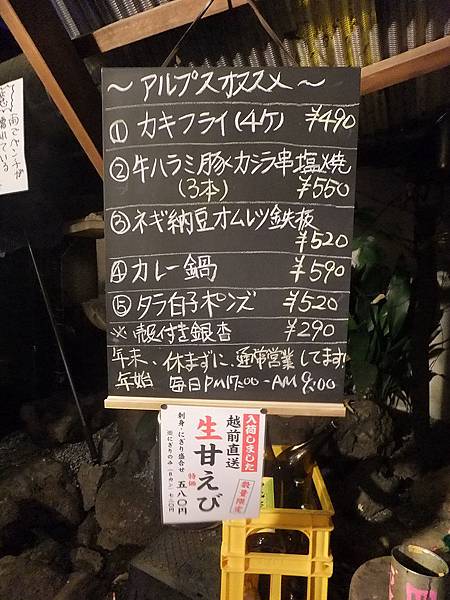 〜アルプスオススメ〜
① カキフライ(4ケ) ¥490
② 牛ハラミ豚カシラ串塩焼
(3本) ¥550
③ ネギ納豆オムレツ鉄板
¥520
④ カレー鍋 ¥590
⑤ タラ白子ポンズ ¥520
※ 殻付き銀杏 ¥290
年末、休まずに、通常営業してます!
年始 毎日PM17:00-AM9:00
入荷しました
越前直送
数量限定
生甘えび
特価
刺身・にぎり盛合せ 五八〇円